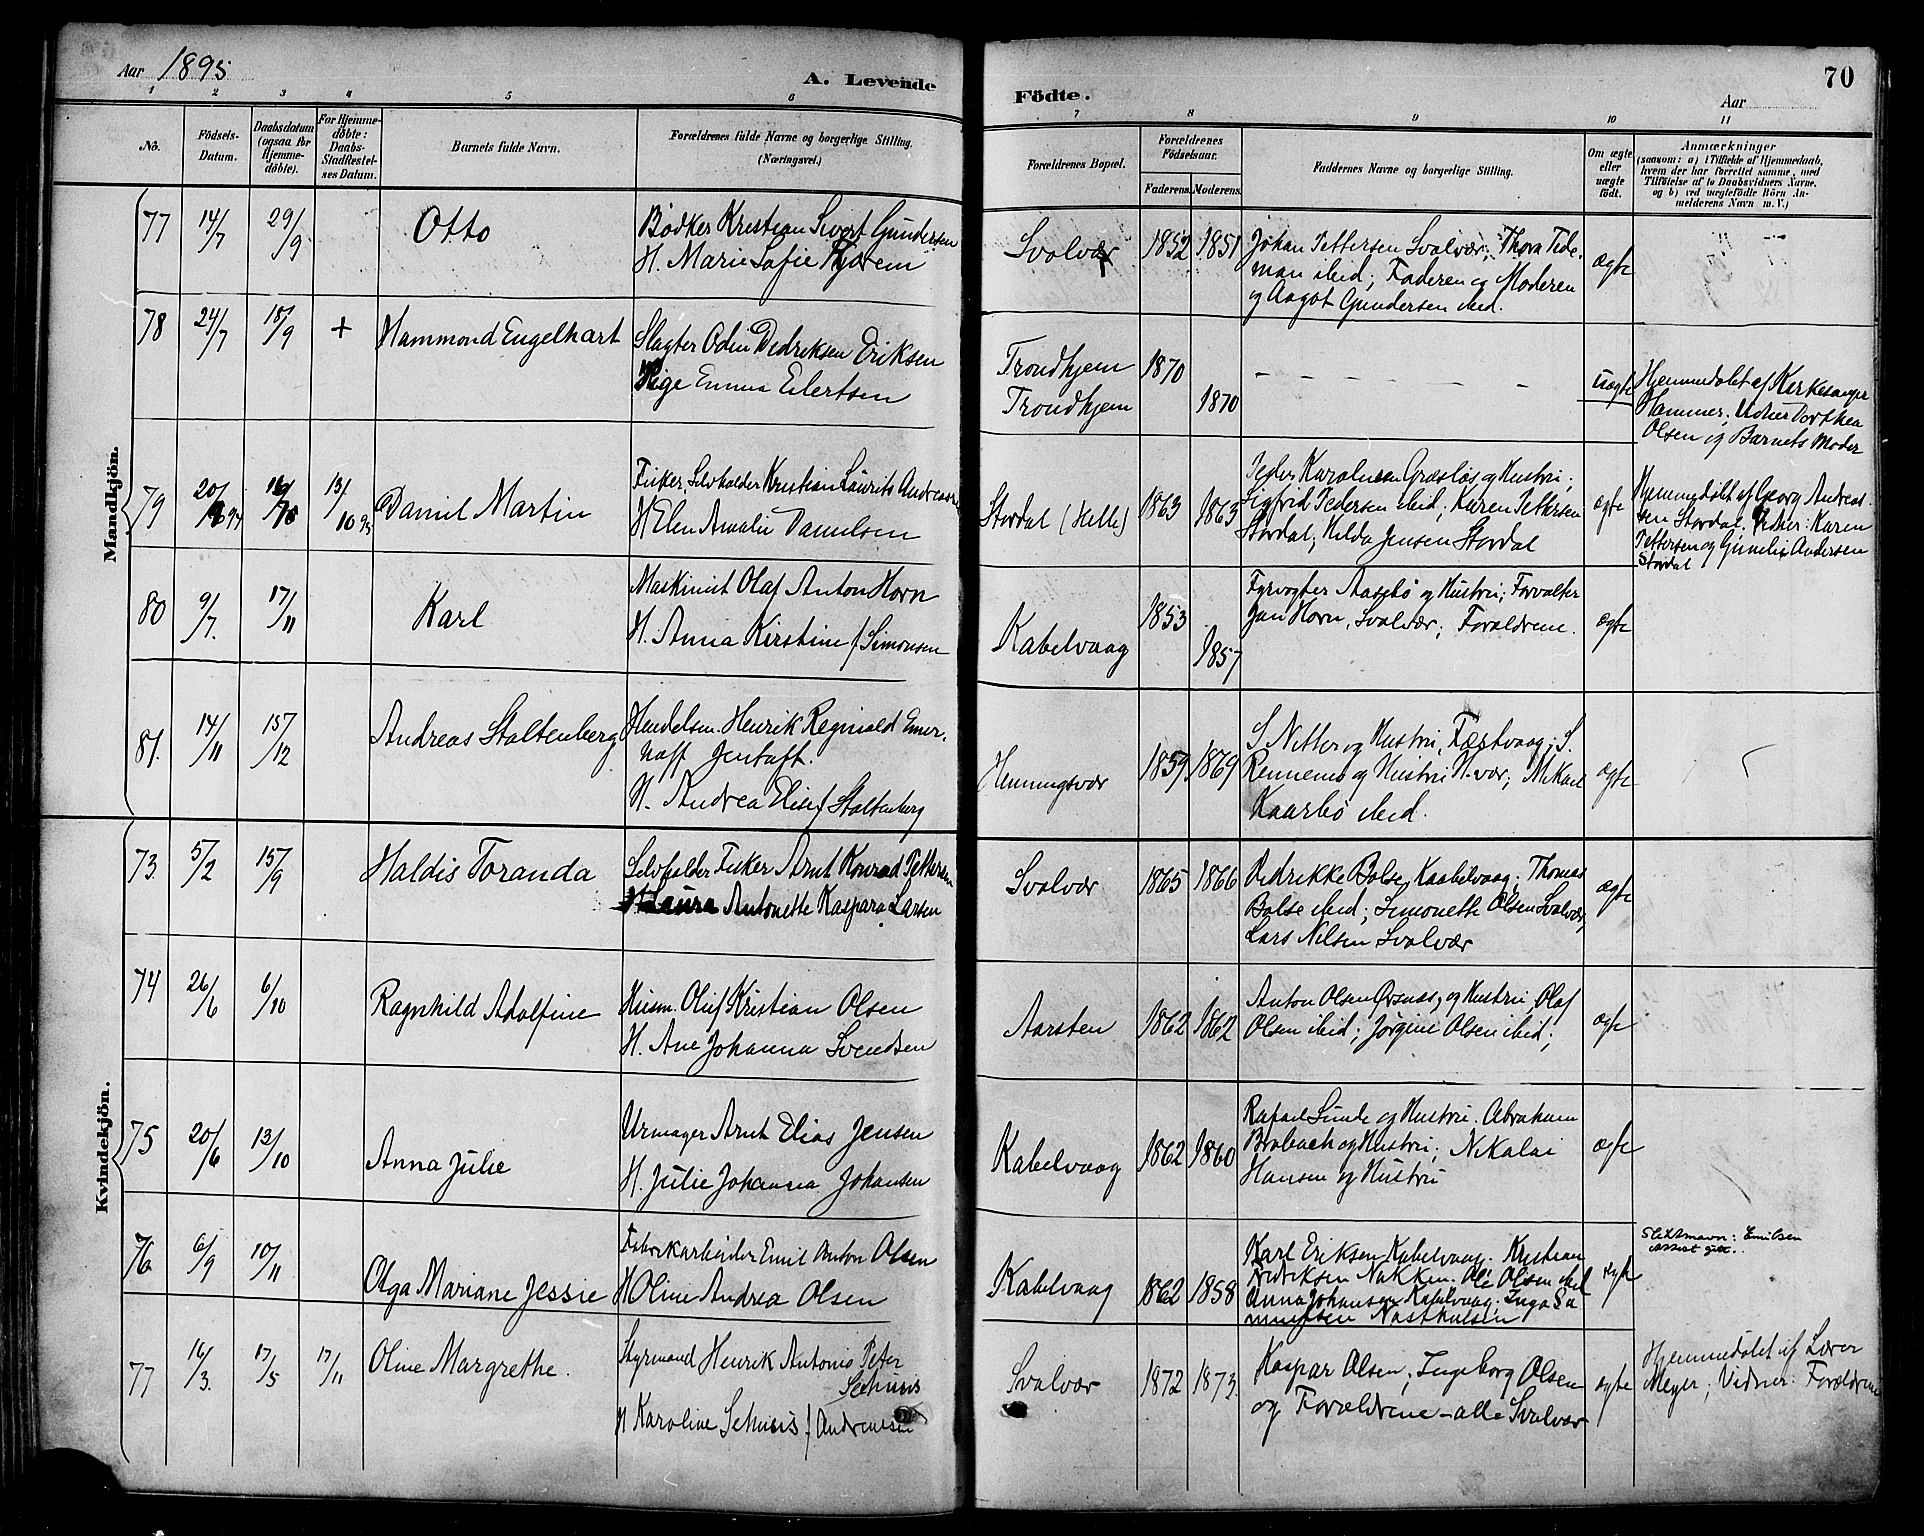 Aar 1895
A. Levende
Födte.
Aar
70
1 2 3 4 5 6 7 8 9 10 11
No.
Födsels-
Datum.
Daabsdatum
(ogsaa for
Hjemme-
döbte).
For Hjemme-
döbte:
Daabs-
Stadfæstel-
ses Datum.
Barnets fulde Navn.
Forældrenes fulde Navne og borgerlige Stilling.
(Næringsvei.)
Forældrenes Bopæl.
Forældrenes
Födselsaar.
Faderens. Moderens.
Faddernes Navne og borgerlige Stilling.
Om ægte
eller
uægte
födt.
Anmærkninger
(saasom: a) i Tilfælde af Hjemmedaab,
hvem der har forrettet samme, med
Tilföielse af to Daabsvidners Navne,
og b) ved uægtefödte Börn An-
melderens Navn m. V.)
Mandkjön.
77 14/7 29/9 Otto
Bödker Kristian Sivert Gundersen
H. Marie Sofie
Svolvær 1852 1851
Johan Pettersen Svolvær; Thora Tide-
man ibid; Faderen og Moderen
og Aagot Gundersen ibid.
ægte
78 24/7 18/9 + Hammond Engelhart
Slagter Odin Dedriksen Eriksen
Pige Emma Eilertsen
Trondhjem 1870
Trondhjem 1870
uægte
Hjemmedøbt af Kirkesanger
Hammer; Vidner Dorthea
Olsen og Barnets Moder
79 20/ 94 13/10 95 Daniel Martin
Fisker, Selvholder Kristian Laurits Andreassen
H Elen Amalie Danielsen
Stordal (Helle) 1863 1863
Peder Karolusen Græsløs og Hustru;
Sigfrid Pedersen ibid; Karen Pettersen
Stordal; Hilda Jensen Stordal
ægte
Hjemmedøbt af Georg Andreas-
sen Stordal. Vidner: Karen
Pettersen og Andersen
Stordal
80 9/7. 17/11 Karl
Maskinist Olaf Anton Horn
H. Anna Kirstine f Simonsen
Kabelvaag 1853 1857
Fyrvogter Aasebø og Hustru; Forvalter
Jan Horn, Svolvær; Forældrene.
ægte
81. 14/11 15/12 Andreas Stoltenberg
Handelsm. Henrik Reginald Emer-
hoff Jentoft.
H. Andrea Elise f Stoltenberg
Henningsvær 1859 1869
S Netter og Hustru, Festvaag; S.
Rennemo og Hustru H-vær; Mikael
Kaarbø ibid.
ægte
Kvindekjön.
73 5/2 15/9 Haldis Toranda
Selvholder Fisker Arnt Konrad Pettersen
H Laura Antonette Kaspara Larsen
Svolvær 1865 1866
Didrikke Bolse Kaabelvaag; Thomas
Bolse ibid; Simonette Olsen Svolvær;
Lars Nilsen Svolvær
ægte
74 26/6 6/10 Ragnhild Adolfine
Husm. Oluf Kristian Olsen
H. Ane Johanna Svendsen
Aarsten 1862 1862
Anton Olsen Ørsnes, og Hustru, Olaf
Olsen ibid; Jørgine Olsen ibid;
ægte
75 20/6 13/10 Anna Julie
Urmager Arnt Elias Jensen
H. Julie Johanna Johansen
Kabelvaag 1862 1860
Rafael Sunde og Hustru. Abraham
Brobach og Hustru; Nikolai
Hansen og Hustru
ægte
76 6/9 10/11 Olga Mariane Jessie
Fabrikarbeider Emil Anton Olsen
H Oline Andrea Olsen
Kabelvaag 1862 1858
Karl Eriksen Kabelvaag. Kristian
Fredriksen Nakken. Ole Olsen ibid
Anna Johansen Kabelvaag; Inga Sa
muelsen
ægte
Slektsnavn: Emilsen
77 16/3. 17/5 17/11 Oline Margrethe.
Styrmand Henrik Antonis Peter
Sehusis
H Karoline Sehusis f Andreassen
Svolvær 1872 1873.
Kaspar Olsen; Ingeborg Olsen
og Forældrene – alle Svolvær
ægte
Hjemmedøbt af Lærer
Meyer; Vidner: Forældrene